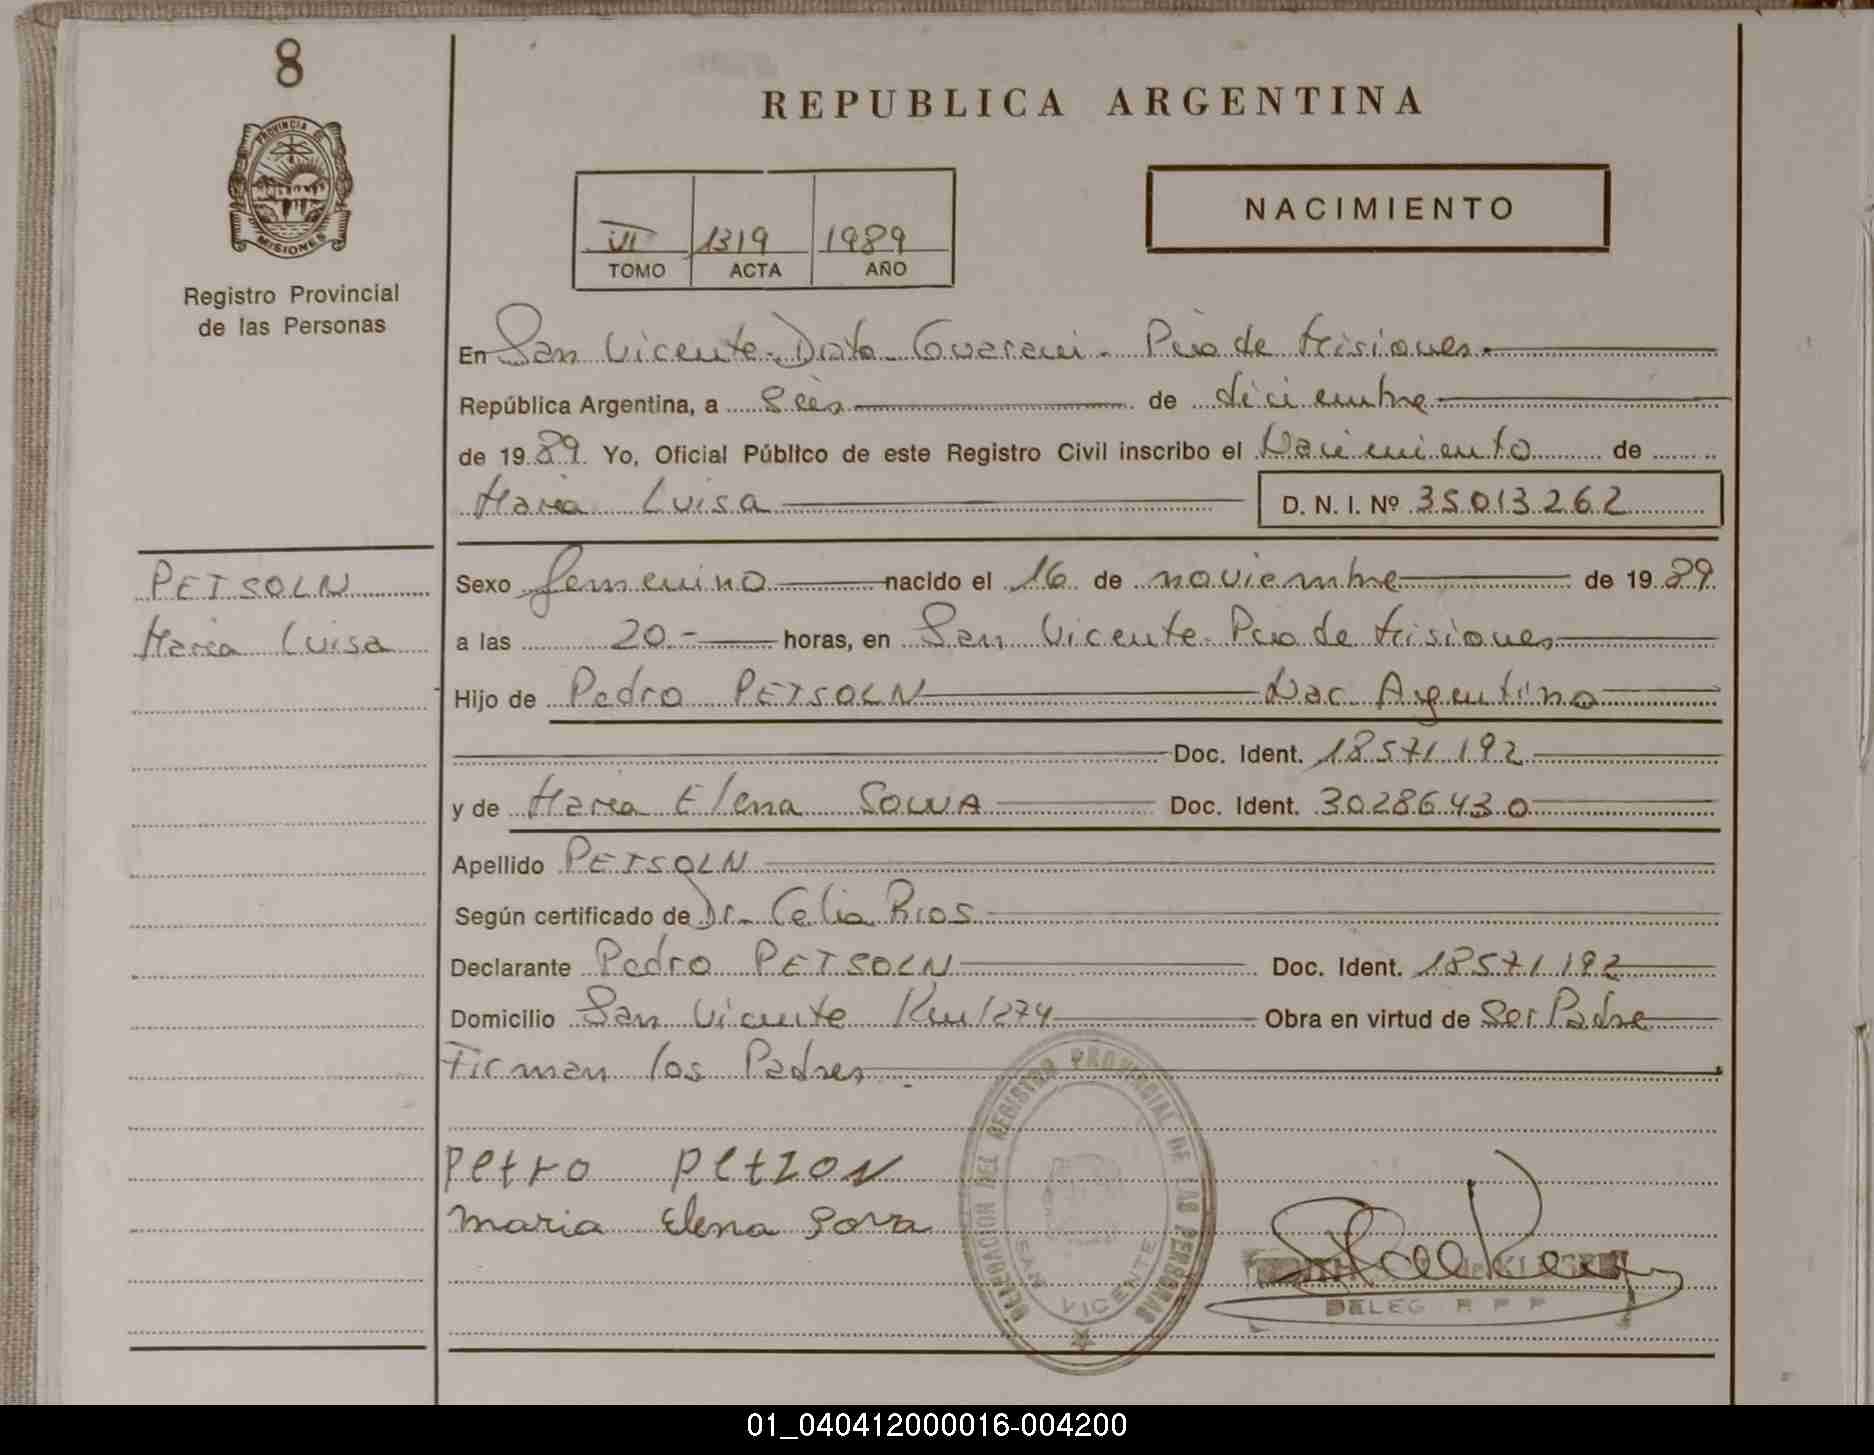 8
REPUBLICA ARGENTINA
PROVINCIA DE
MISIONES
Registro Provincial
de las Personas
VI 1319 1989
TOMO ACTA AÑO
NACIMIENTO
En San Vicente - Dpto Guarani - Pcia de Misiones.
República Argentina, a seis de diciembre
de 1989 Yo, Oficial Público de este Registro Civil inscribo el Nacimiento de
Maria Luisa D. N. I. Nº 35013262
PETSOLN
Maria Luisa
Sexo femenino nacido el 16 de noviembre de 1989
a las 20.- horas, en San Vicente - Pcia de Misiones
Hijo de Pedro PETSOLN Nac. Argentino
Doc. Ident. 18571192
y de Maria Elena SOWA Doc. Ident. 30286430
Apellido PETSOLN
Según certificado de Dr. Celia Rios
Declarante Pedro PETSOLN Doc. Ident. 18571192
Domicilio San Vicente Km 1274 Obra en virtud de Ser Padre
Firman los Padres.
Petro Petzon
Maria Elena Sova
DELEGACION DEL REGISTRO PROVINCIAL DE LAS PERSONAS
SAN VICENTE
DELEG R P P
01_040412000016-004200